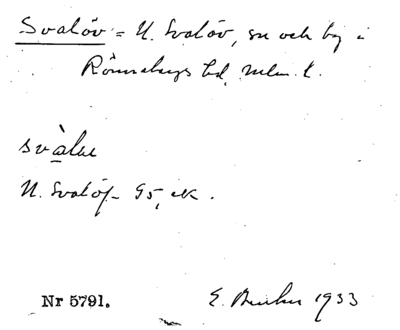 Svalöv = N. Svalöv, sn och by i
Rönnebergs hd, Mlm. l.
svàlɯ
N. Svalöf - 95, ek.
Nr 5791.
E. 1933